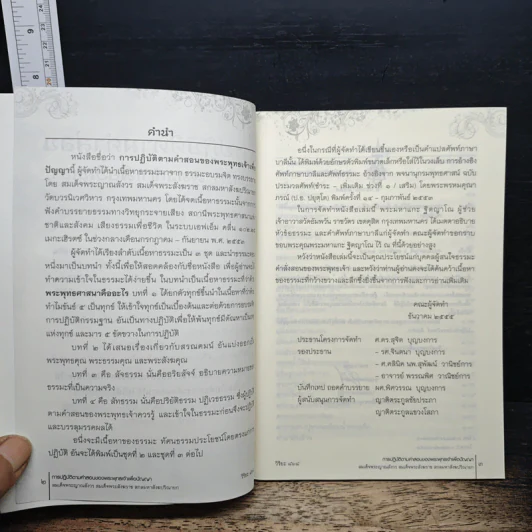 คำนำ
หนังสือชื่อว่า การปฏิบัติตามคำสอนของพระพุทธเจ้าเพื่อ
ปัญญา นี้ ผู้จัดทำได้นำเนื้อหาธรรมะมาจาก ธรรมะอบรมจิต
โดย สมเด็จพระญาณสังวร สมเด็จพระสังฆราช สกลมหาสังฆปริณายก
วัดบวรนิเวศวิหาร กรุงเทพมหานคร โดยได้คดเนื้อธรรมะนี้จากการ
ฟังคำบรรยายธรรมทางวิทยุกระจายเสียง สถานีพระพุทธศาสนาแห่ง
ชาติและสังคม เสียงธรรมเพื่อชีวิต ในระบบเอฟเอ็ม คลื่น
เมกะเฮิรตซ์ ในช่วงกลางเดือนกรกฎาคม – กันยายน พ.ศ. ๒๕๕๓
ผู้จัดทำได้เรียงลำดับเนื้อธรรมะเป็น ๓ ชุด และนำธรรมะ
หนึ่งมาเป็นบทนำ ทั้งนี้เพื่อให้สอดคล้องกับชื่อหนังสือ เพื่อผู้อ่าน
ทำความเข้าใจในธรรมะได้ง่ายขึ้น ในบทนำเป็นเนื้อหาธรรมะที่ว่าด้วย
พระพุทธศาสนาคืออะไร บทที่ ๑ ได้ยกตัวทุกข์ขึ้นนำในเนื้อหา
ทำไมขันธ์ ๕ เป็นทุกข์ ให้เข้าใจทุกข์เป็นเบื้องต้นและต่อด้วย
การปฏิบัติกรรมฐาน อันเป็นทางปฏิบัติเพื่อให้พ้นทุกข์มีตัณหาเป็น
แห่งทุกข์ และมาร ๕ ขัดขวางในการปฏิบัติ
บทที่ ๒ ได้เสนอเรื่องเกี่ยวกับสรณคมน์ อันแบ่งออก
พระพุทธคุณ พระธรรมคุณ และพระสังฆคุณ
บทที่ ๓ คือ สัจธรรม นั่นคืออริยสัจจ์ อธิบายความหมาย
ธรรมะที่เป็นความจริง
บทที่ ๔ คือ สัทธรรม นั่นคือปริยัติธรรม ปฏิเวธธรรม ซึ่งผู้ปฏิบัติ
ตามคำสอนของพระพุทธเจ้าควรรู้ และเข้าใจในธรรมะก่อนซึ่งจะปฏิบัติ
และบรรลุมรรคผลได้
อนึ่งจะมีเนื้อหาของธรรมะ ทัศนธรรมประโยชน์โดยตรง
ปฏิบัติ อันจะได้พิมพ์เป็นชุดที่ ๒ และชุดที่ ๓ ต่อไป
๒
การปฏิบัติตามคำสอนของพระพุทธเจ้าเพื่อปัญญา
สมเด็จพระญาณสังวร สมเด็จพระสังฆราช สกลมหาสังฆปริณายก
อนึ่งในกรณีที่ผู้จัดทำได้เขียนขึ้นเองหรือเป็นคำแปลศัพท์ภาษา
บาลีนั้น ได้พิมพ์ด้วยอักษรตัวพิมพ์ขนาดเล็กหรือใส่ไว้ในวงเล็บ การอ้างอิง
ศัพท์ภาษาบาลีและคำศัพท์ธรรมะ อ้างอิงจาก พจนานุกรมพุทธศาสน์ ฉบับ
ประมวลศัพท์(ชำระ – เพิ่มเติม ช่วงที่ ๑ / เสริม) โดยพระพรหมคุณา
ภรณ์ (ป.อ. ปยุตฺโต) พิมพ์ครั้งที่ – กุมภาพันธ์ ๒๕๕๓
ในการจัดทำหนังสือเล่มนี้ พระมหาภาณุ ฐิตญาโณ ผู้ช่วย
เจ้าอาวาสวัดอัมพวัน ราชวัตร เขตดุสิต กรุงเทพมหานคร ได้เมตตาอธิบาย
หัวข้อธรรมะ และคำศัพท์ภาษาบาลีแก่ผู้จัดทำ คณะผู้จัดทำขอกราบ
ขอบพระคุณพระมหาภาณุ ฐิตญาโณ ไว้ ณ ที่นี้ด้วยอย่างสูง
หวังว่าหนังสือเล่มนี้จะเป็นคุณประโยชน์แก่บุคคลผู้สนใจธรรมะ
คำสั่งสอนของพระพุทธเจ้า และหวังว่าท่านผู้อ่านคงจะได้ค้นคว้าเนื้อหา
ของธรรมะที่กว้างขวางและลึกซึ้งยิ่งขึ้นจากการฟังและการอ่านเพิ่มเติม
คณะผู้จัดทำ
ธันวาคม ๒๕๕๔
ประธานโครงการจัดทำ ศ.ดร.สุจิต บุญบงการ
รองประธาน – รศ.จินตนา บุญบงการ
– ศ.คลินิค นพ.สุพัฒน์ วาณิชย์การ
– อาจารย์ พรรณพิศ วาณิชย์การ
บันทึกเทป ถอดคำบรรยาย ผศ.พิศวรรณ บุญบงการ
ผู้สนับสนุนการจัดทำ ญาติตระกูลชัยประภา
ญาติตระกูลแขวงโสภา
การปฏิบัติตามคำสอนของพระพุทธเจ้าเพื่อปัญญา
สมเด็จพระญาณสังวร สมเด็จพระสังฆราช สกลมหาสังฆปริณายก
๓
8
9
20